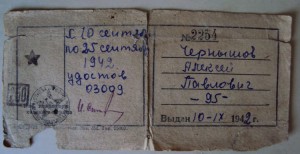 с 10 сентяб
по 25 сентября
1942
удостов
03099
№ 2254
Чернышов
Алексей
Павлович
-95-
Выдан 10-IX 1942 г.